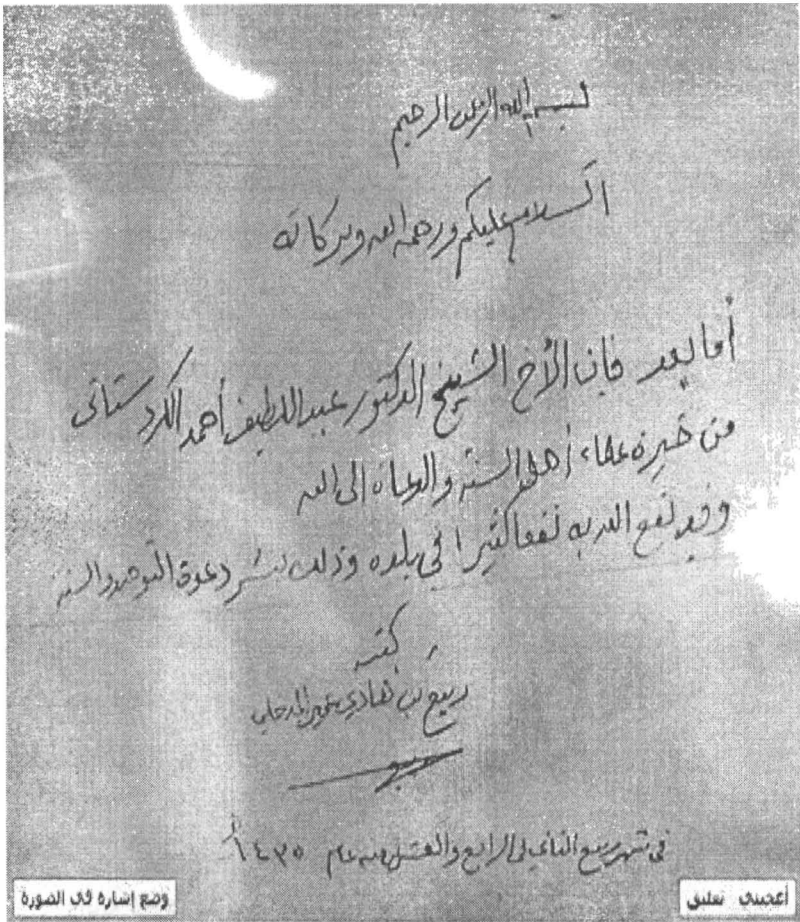 بسم الله الرحمن الرحيم
السلام عليكم ورحمه الله وبركاته
أما بعد فإن الأخ الشيخ الدكتور عبد اللطيف أحمد الكردستاني
من خيرة علماء أهل السنة والدعاة إلى الله
وقد نفع الله به نفعا كثيرا في بلده وذلك بنشر دعوة التوحيد والسنة
كتبه
ربيع بن هادي عمير المدخلي
في شهر ربيع الثاني في الرابع والعشرين منه عام ١٤٣٥
أعجبني تعليق
وضع إشارة في الصورة